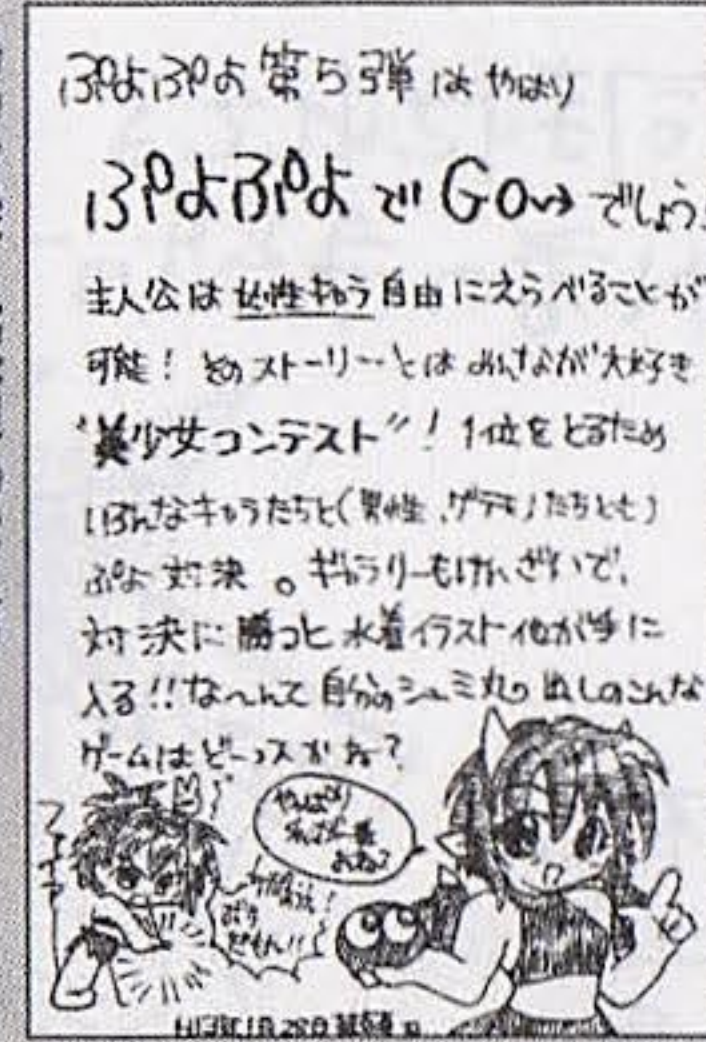 ぷよぷよ第5弾はやはり
ぷよぷよでGO〜でしょう
主人公は女性キャラ自由にえらべることが
可能！そのストーリーとはみんなが大好き
"美少女コンテスト"！1位をとるため
いろんなキャラたちと(男性、ゲテモノたちとも)
ぷよ対決。ギャラリーもけんざいで、
対決に勝つと水着イラスト他が手に
入る!!な〜んて自分のシュミ丸出しのこんな
ゲームはど〜っスかね？
やっぱり
ファイヤー